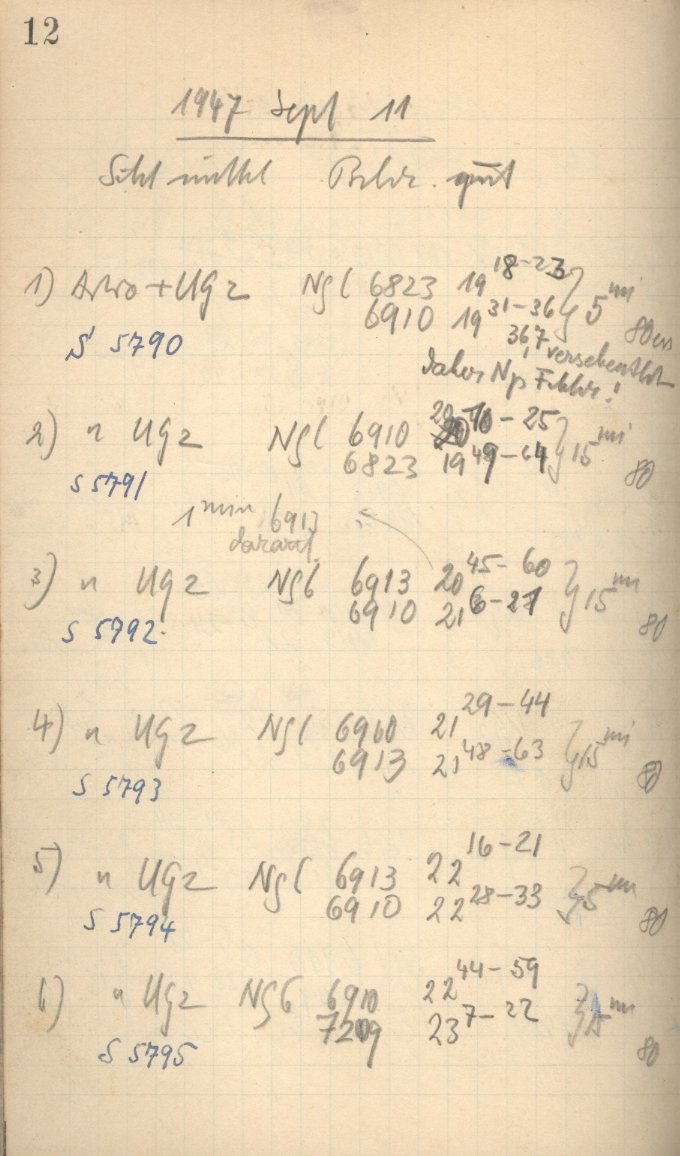 12
1947 Sept 11
Sicht mittel Bilder gut
1) Astro + UG2 NGC 6823 19 18-23 } 5 min
6910 19 31-36 80 cm
S 5790 36,7 versehentlich
daher Np Fehler!
2) " UG2 NGC 6910 20 10-25 } 15 min
6823 19 49-64 80
S 5791
1 min 6913
darauf
3) " UG2 NGC 6913 20 45-60 } 15 min
6910 21 6-21 80
S 5792
4) " UG2 NGC 6910 21 29-44 } 15 min
6913 21 48-63 80
S 5793
5) " UG2 NGC 6913 22 16-21 } 5 min
6910 22 28-33 80
S 5794
6) " UG2 NGC 6910 22 44-59 } 15 min
7209 23 7-22 80
S 5795